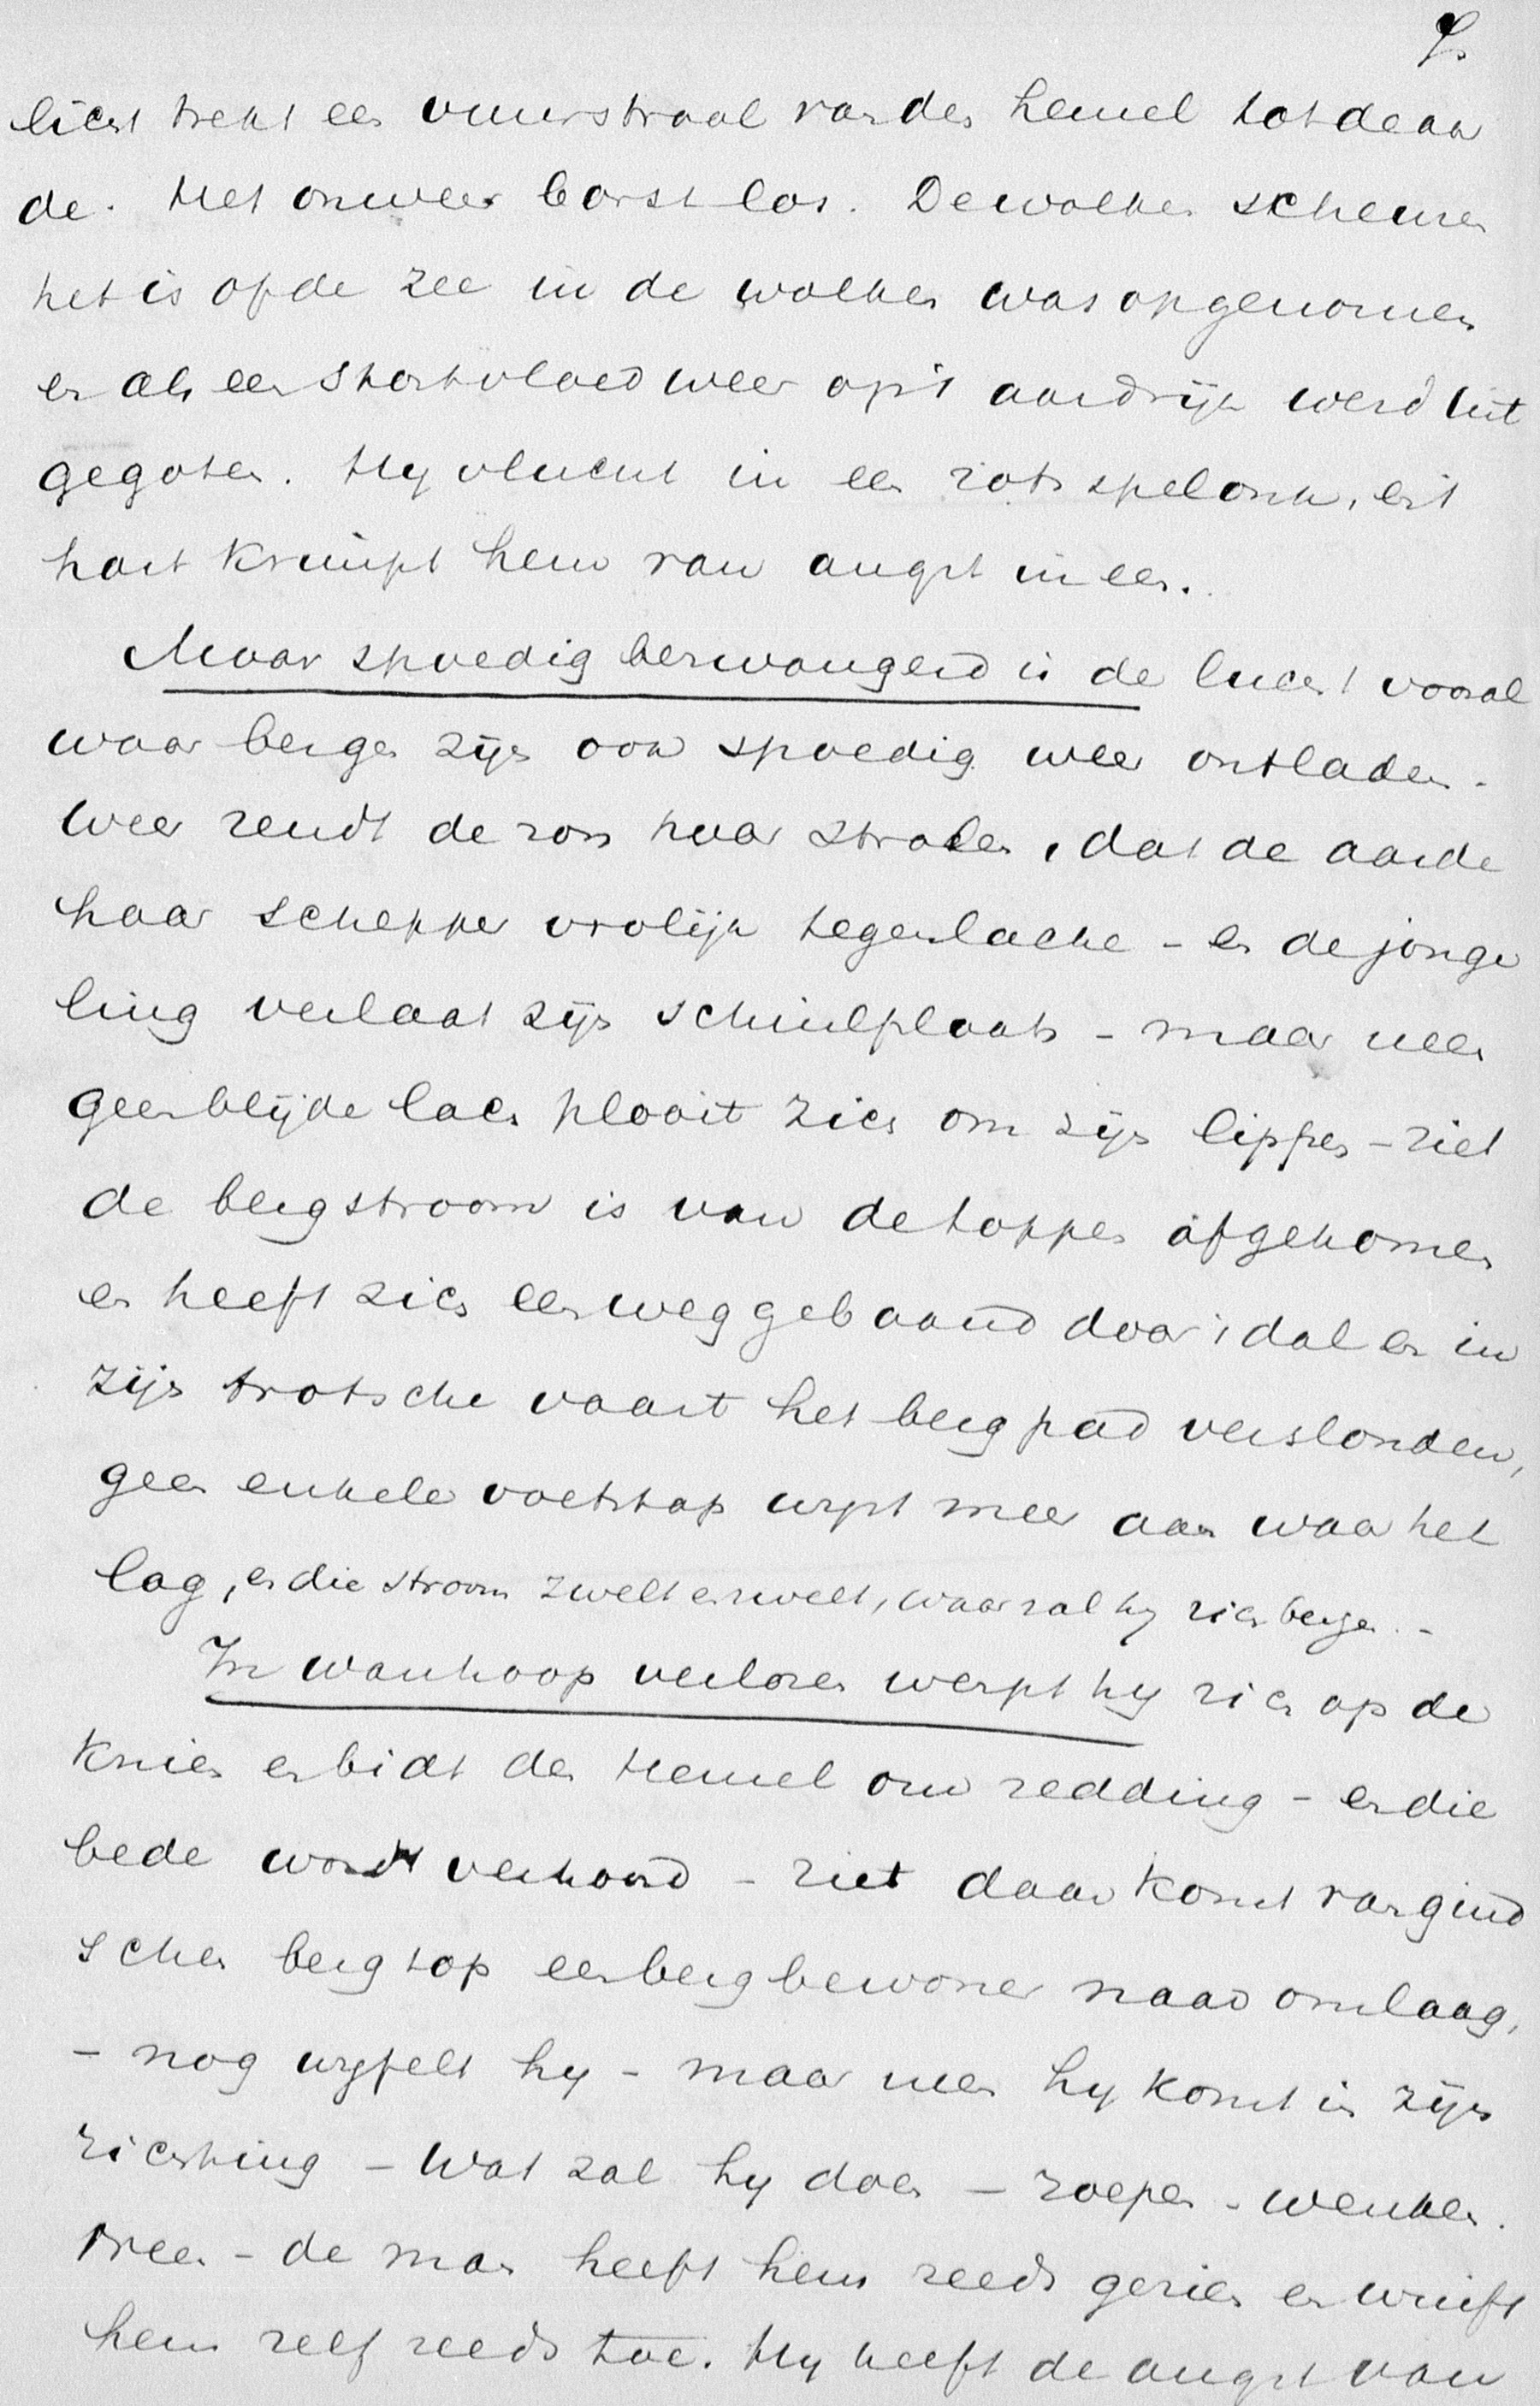 licht trekt een vuurstraal van den hemel tot de aar
de. Het onweer borst los. De wolken scheuren
het is of de zee in de wolken was opgenomen
en als een stortvloed weer op 't aardrijk werd uit
gegoten. Hy vlucht in een rotsspelonk, en 't
hart krimpt hem van angst in een.
Maar spoedig bezwangerd is de lucht vooral
waar bergen zijn ook spoedig weer ontladen.
Weer zendt de zon haar stralen, dat de aarde
haar schepper vrolijk tegenlache - en de jonge
ling verlaat zijn schuilplaats - maar neen
geen blijde lach plooit zich om zijn lippen - ziet
de bergstroom is van de toppen afgekomen
en heeft zich een weg gebaand door 't dal en in
zijn trotsche vaart het bergpad verslonden,
geen enkele voetstap wyst meer aan waar het
lag, en die stroom zwelt en zwelt, waar zal hy zich bergen. -
In wanhoop verloren werpt hy zich op de
knien en bidt den Hemel om redding - en die
bede wordt verhoord - ziet daar komt van gind
schen bergtop een bergbewoner naar omlaag,
- nog twyfelt hy - maar neen hy komt in zijn
richting - Wat zal hy doen - roepen - wenken.
Neen - de man heeft hem reeds gezien en wuift
hem zelf reeds toe. Hy heeft de angst van